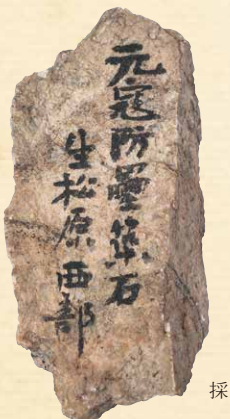 元寇防塁築石
生松原西部
採